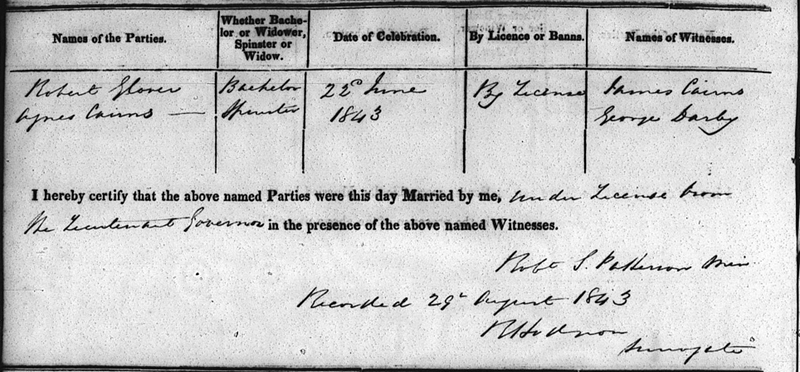 Names of the Parties. Whether Bache- lor or Widower, Spinster or Widow. Date of Celebration. By Licence or Banns. Names of Witnesses.
Robert Glover Bachelor 22d June By License James Cairns
Agnes Cairns — Spinster 1843 George Darby
I hereby certify that the above named Parties were this day Married by me, under License from
the Lieutenant Governor in the presence of the above named Witnesses.
Robt S. Patterson Min
Recorded 29th August 1843
Hodgson
Surrogate